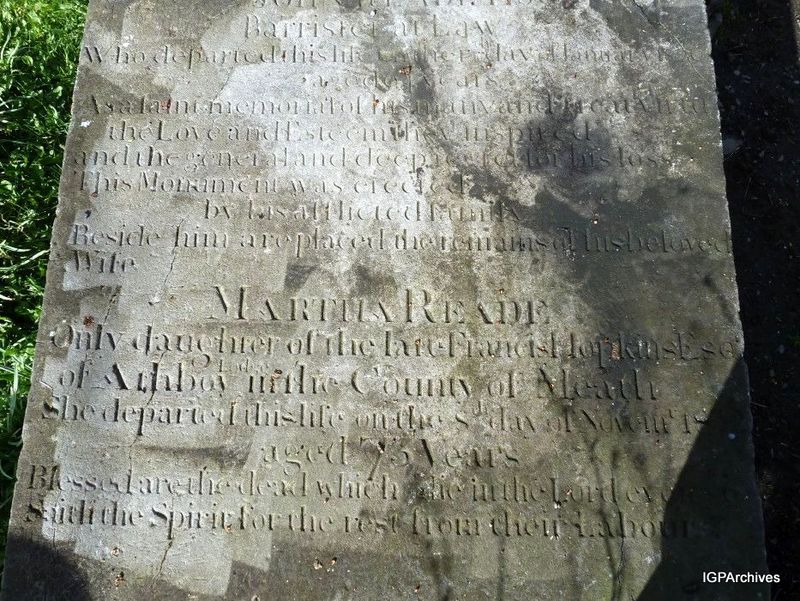 Barrister at Law
Who departed this life day of January
aged years
As a faint memorial of his many and great
the Love and Esteem they inspired
and the general and deep regret for his loss
This Monument was erected
by his afflicted family
Beside him are placed the remains of his beloved
Wife
MARTHA READE
Only daughter of the late Francis Hopkins Esq
of Athboy in the County of Meath
She departed this life on the 8th day of Novemr 18
aged 75 Years
Blessed are the dead which die in the Lord
Saith the Spirit for the rest from their Labours
IGPArchives